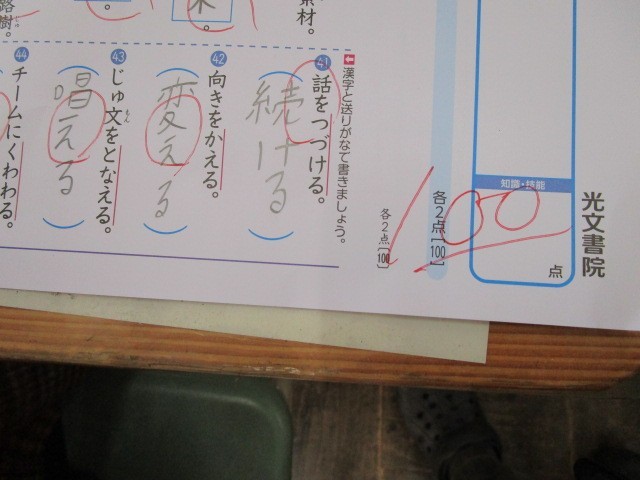 光文書院
知識・技能
点
100
各2点[100]
各2点[100]
漢字と送りがなで書きましょう。
41 話をつづける。
(続ける)
42 向きをかえる。
(変える)
43 じゅ文をとなえる。
(唱える)
44 チームにくわわる。
素材。